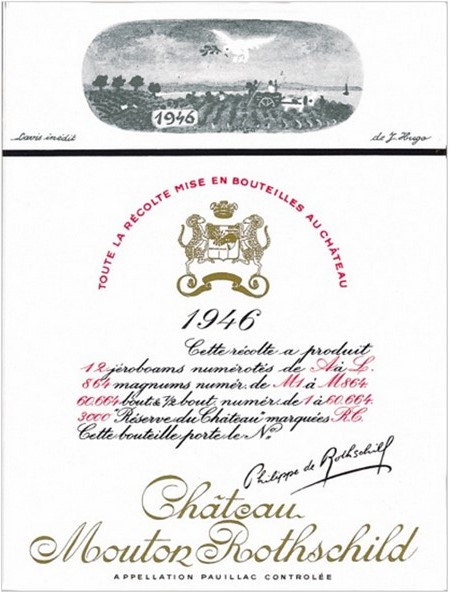 1946
Lavis inédit de J. Hugo
TOUTE LA RÉCOLTE MISE EN BOUTEILLES AU CHÂTEAU
1946
Cette récolte a produit
12 jéroboams numérotés de A à L.
864 magnums numér. de M1 à M864.
60.664 bout & ½ bout. numér. de 1 à 60.664.
3000 "Réserve du Château" marquées R.C.
Cette bouteille porte le Nº
Philippe de Rothschild
Château
Mouton Rothschild
APPELLATION PAUILLAC CONTROLÉE